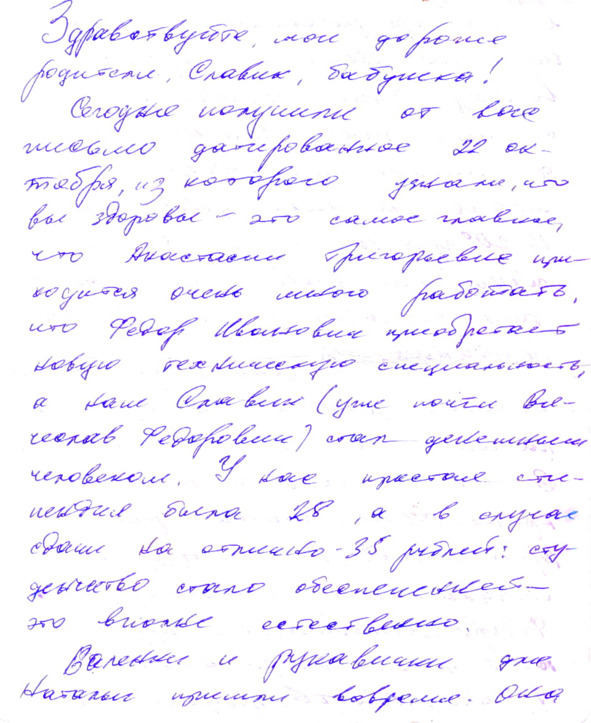 Здравствуйте, мои дорогие
родители, Славик, бабушка!
Сегодня получили от вас
письмо датированное 22 ок-
тября, из которого узнали, что
вы здоровы – это самое главное,
что Анастасии Григорьевне при-
ходится очень много работать,
что Федор Иванович приобретает
новую техническую специальность,
а наш Славик (уже почти Вя-
чеслав Федорович) стал денежным
человеком. У нас простая сти-
пендия была 28, а в случае
сдачи на отлично - 35 рублей: сту-
денчество стало обеспеченней –
это вполне естественно.
Валенки и рукавички для
Натальи пришли вовремя. Она